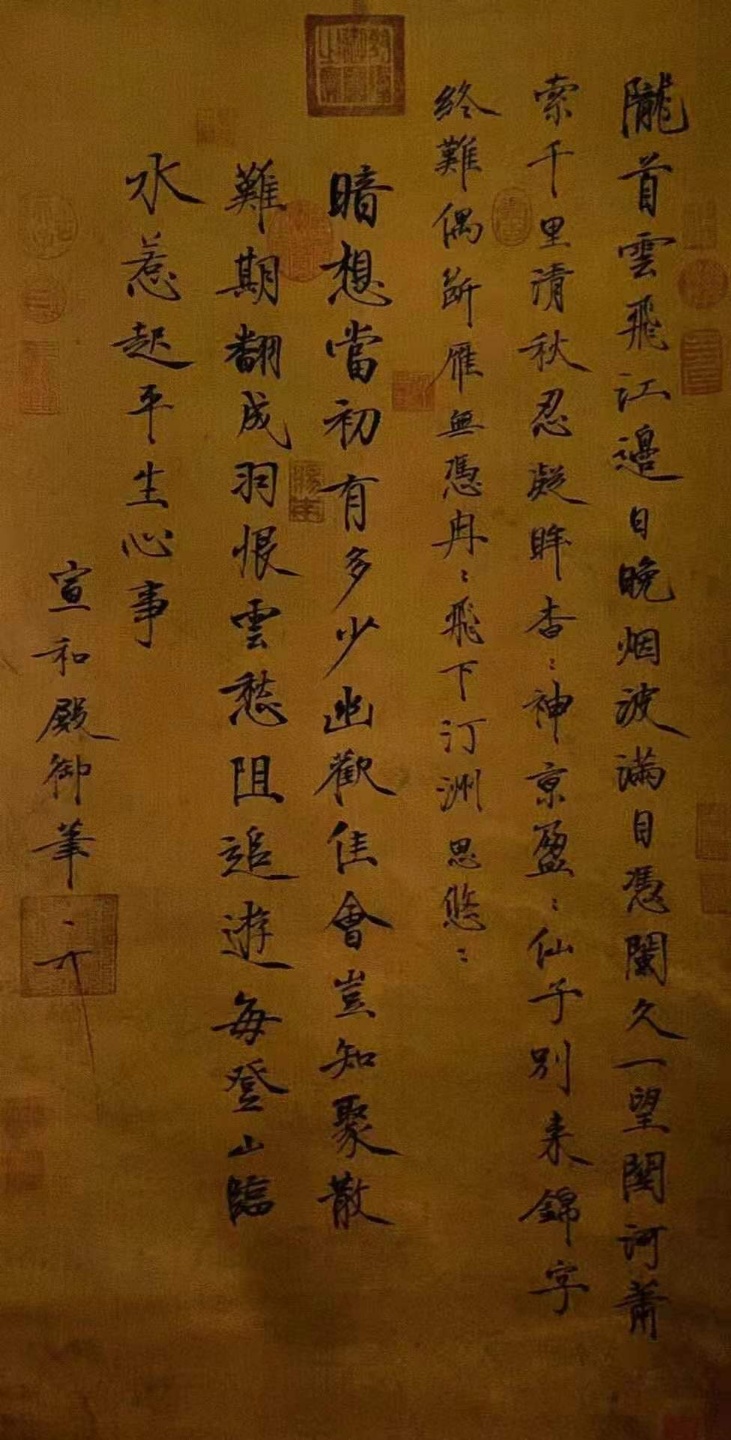 隴首雲飛江邊日晚烟波滿目憑闌久一望関河蕭
索千里清秋忍凝眸杳〻神京盈〻仙子别来錦字
終難偶断雁無憑冉〻飛下汀洲思悠〻
暗想當初有多少幽歡佳會豈知聚散
難期翻成羽恨雲愁阻追遊每登山臨
水惹起平生心事
宣和殿御筆